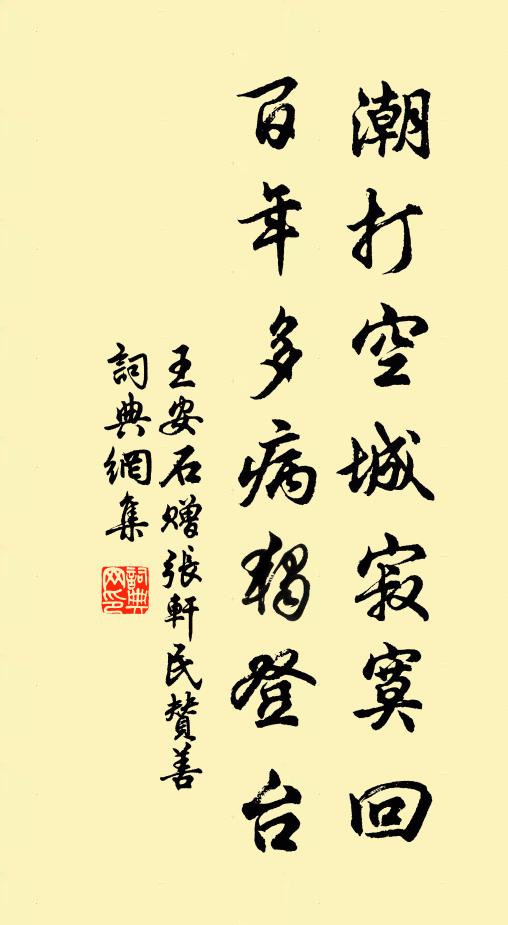 潮打空城寂寞回
百年多病独登台
王安石赠張軒民贊善
詞典網集
詞典网印